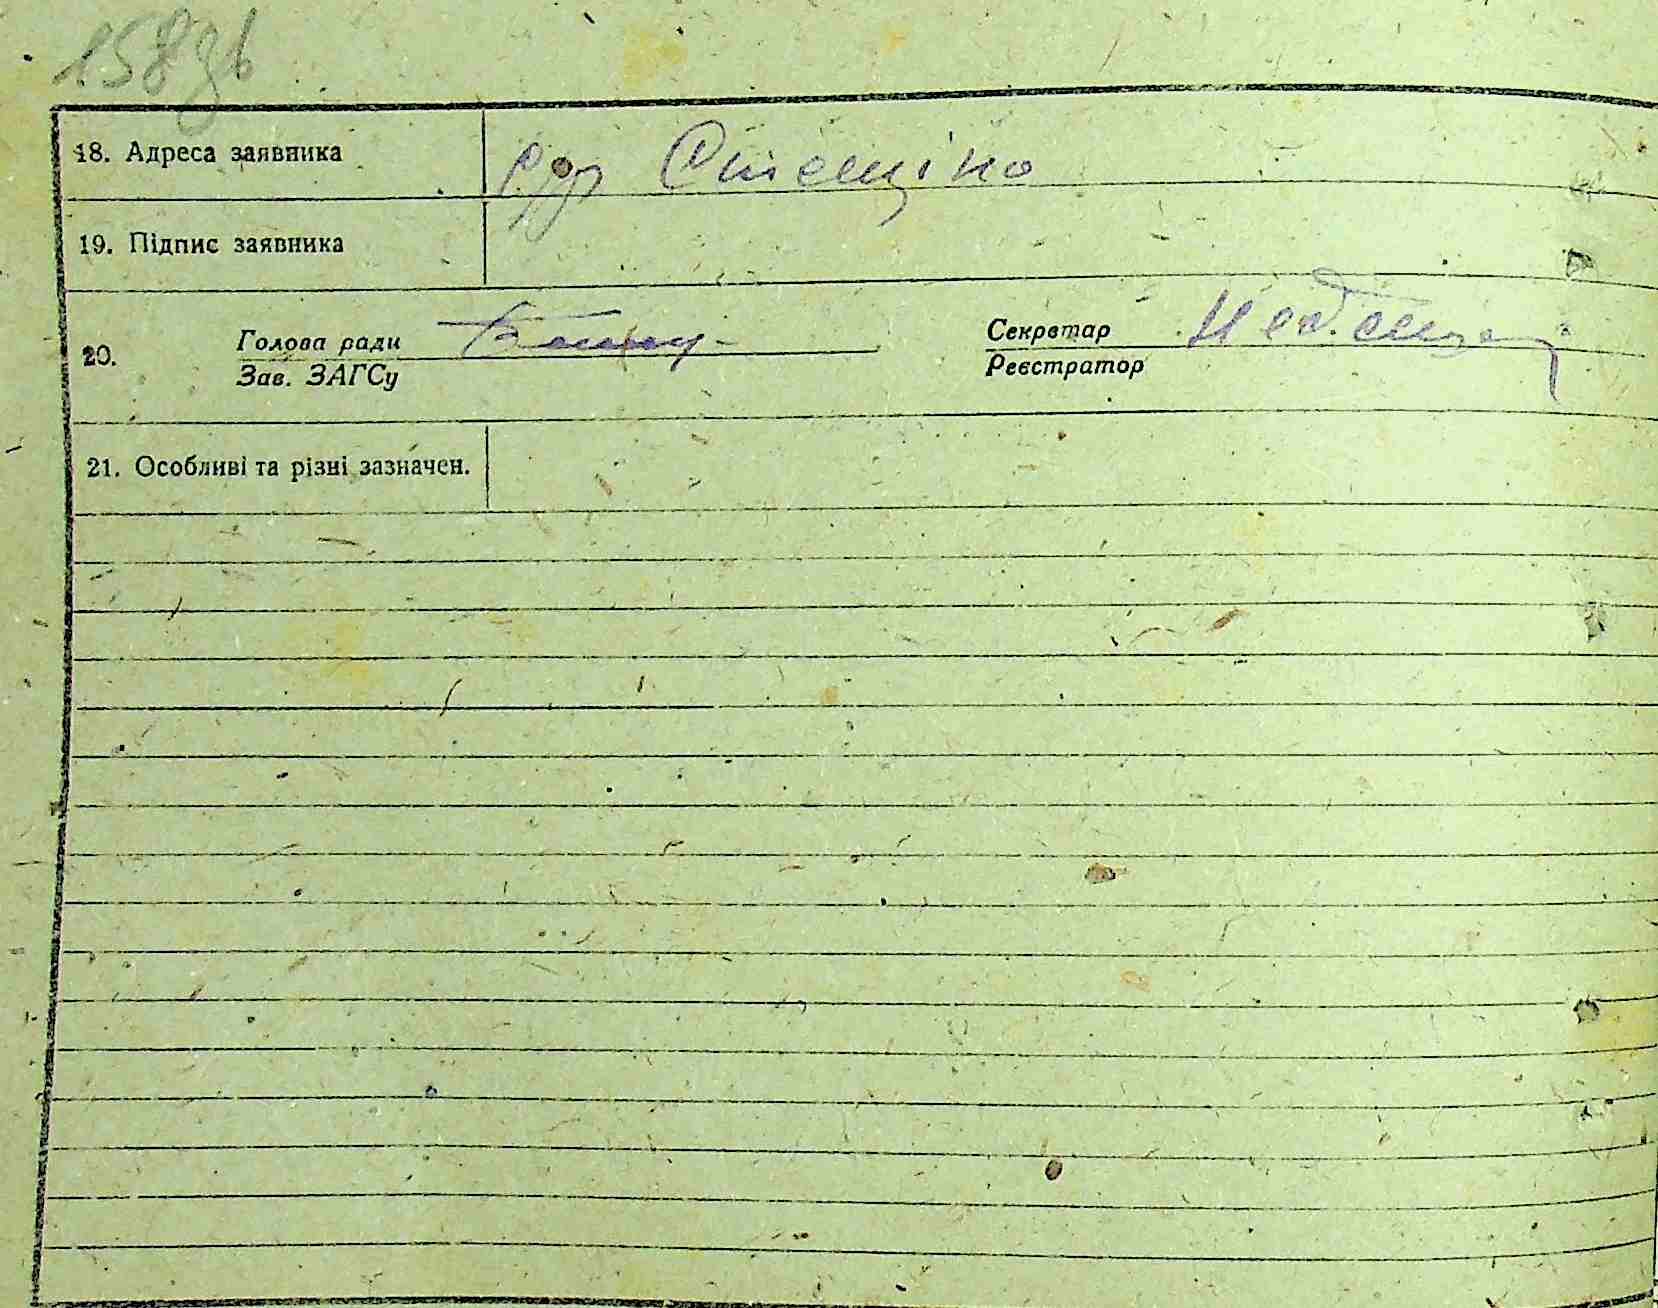 158 зв
18. Адреса заявника
19. Підпис заявника
20. Голова ради Секретар
Зав. ЗАГСу Реєстратор
21. Особливі та різні зазначен.